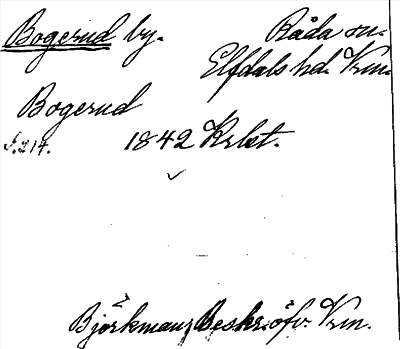 Bogerud by. Råda sn.
Elfdals hd. Vrm.
Bogerud
s. 214. 1842 Krbet.
Björkman, Beskr. öfv. Vrm.